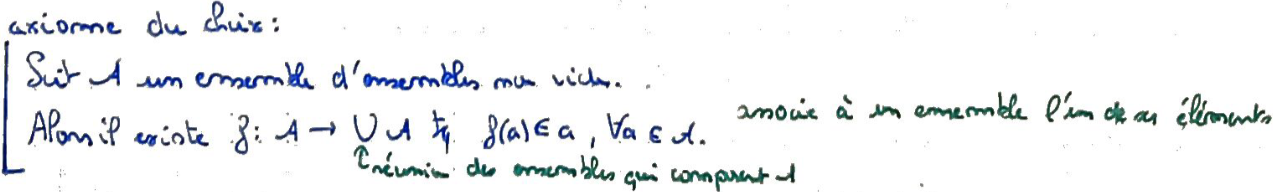 axiome du choix :
Soit A un ensemble d'ensembles non vides.
Alors il existe f : A → ∪ A tq f(a) ∈ a, ∀a ∈ A. associe à un ensemble l'un de ses éléments
↑ réunion des ensembles qui composent A